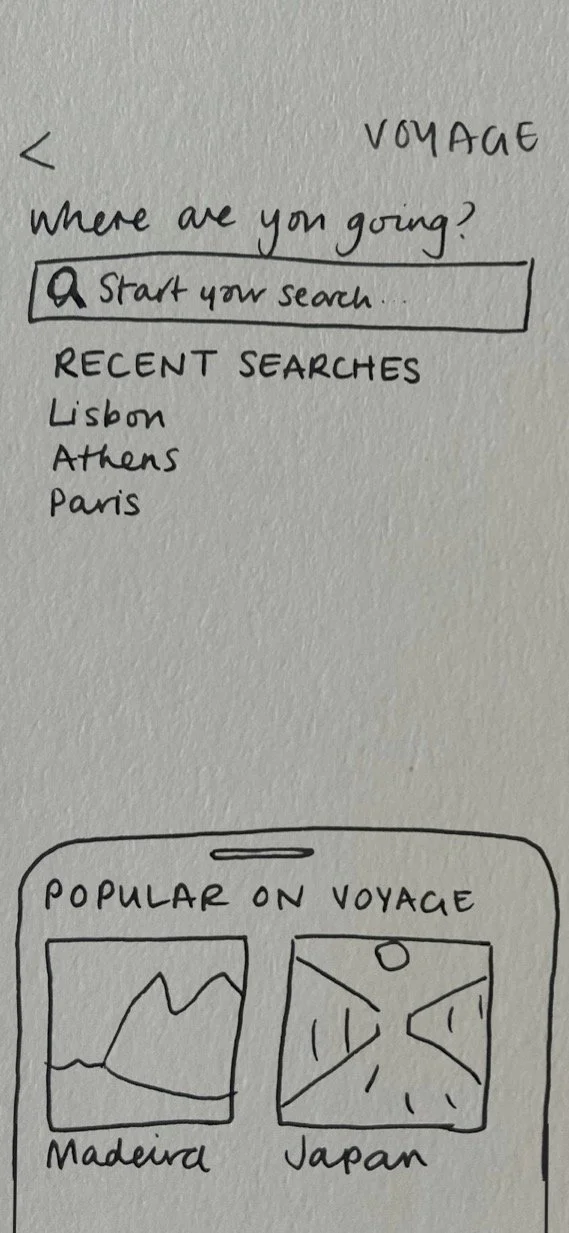 <
VOYAGE
Where are you going?
Start your search...
RECENT SEARCHES
Lisbon
Athens
Paris
POPULAR ON VOYAGE
Madeira
Japan